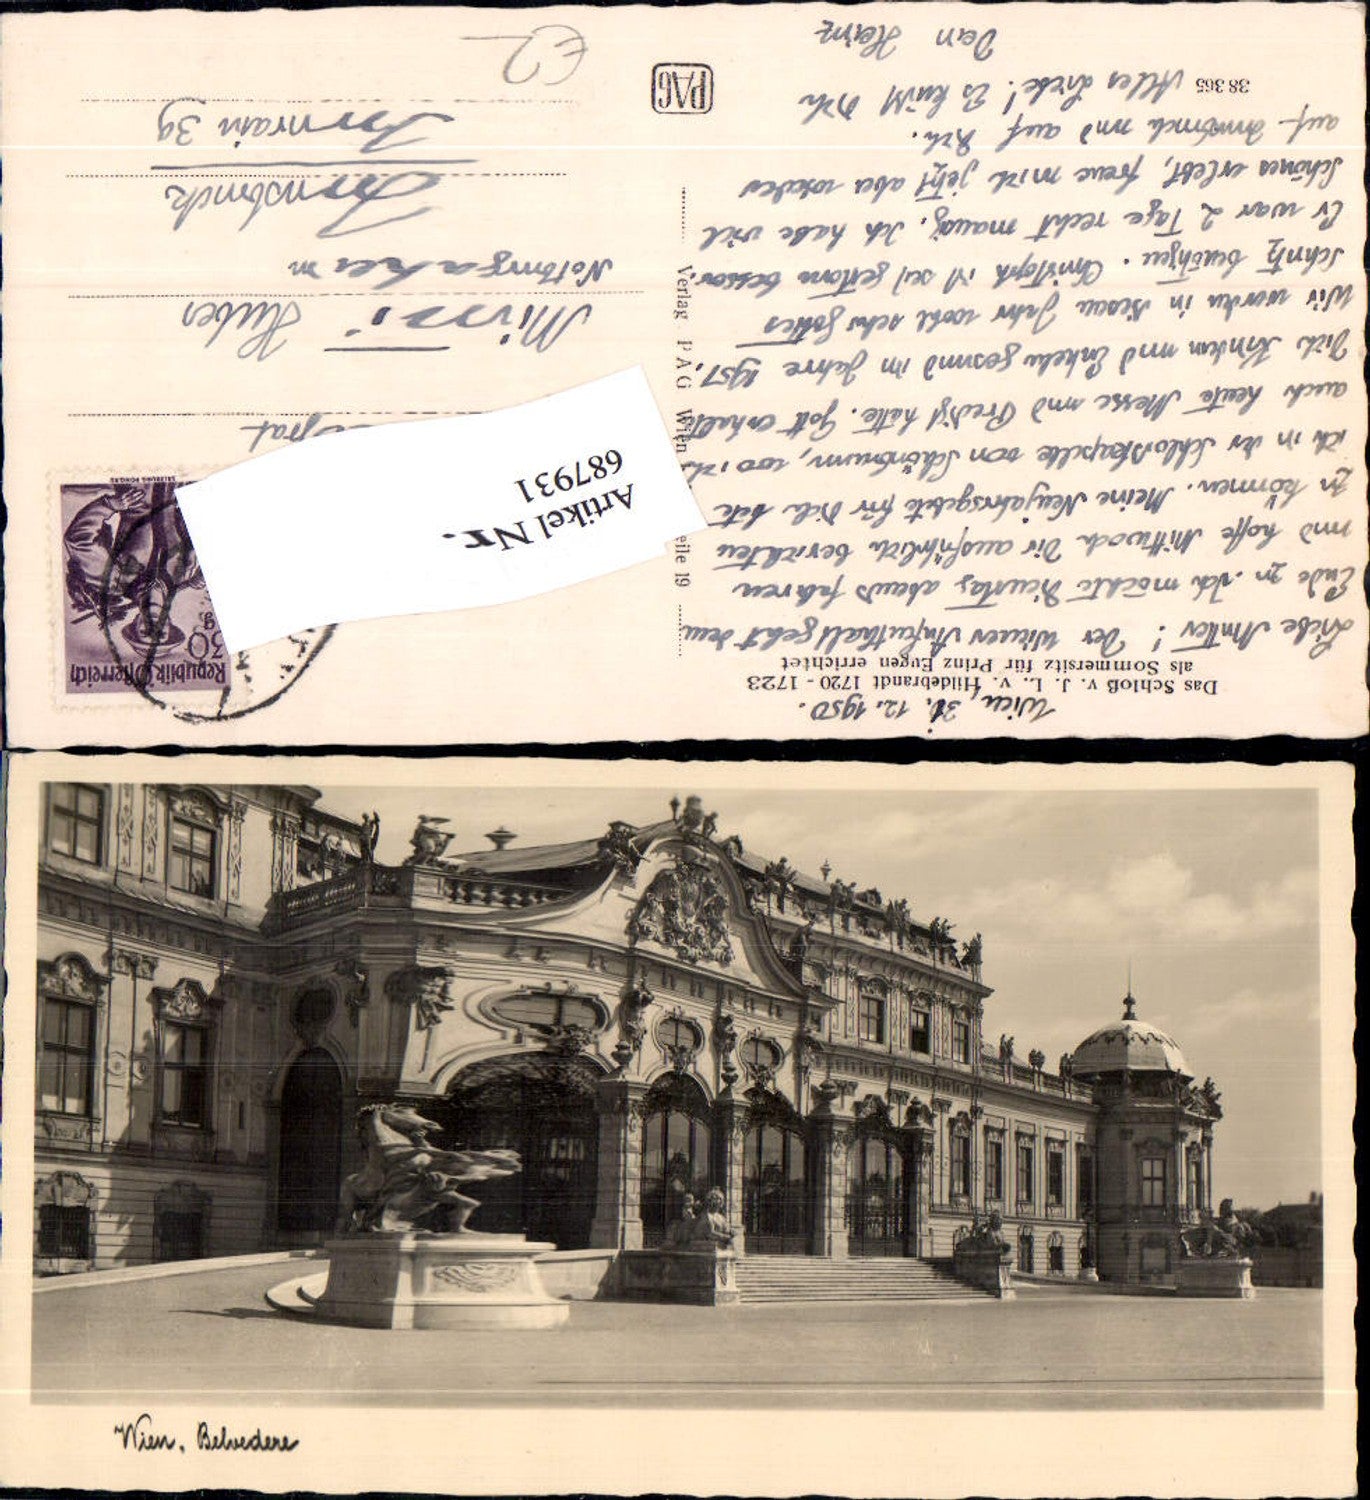 Wien, 31. 12. 1950.
Das Schloß v. J. L. v. Hildebrandt 1720 - 1723
als Sommersitz für Prinz Eugen errichtet
Liebe Mutter! Der Wiener Aufenthalt geht dem
Ende zu. Ich möchte Dienstag abends fahren
und hoffe Mittwoch Dir ausführlich berichten
zu können. Meine Neujahrsgebete für Dich bete
ich in der Schloßkapelle von Schönbrunn, wo ich
auch heute Messe und Predigt hatte. Gott erhalte
Dich Kindern und Enkeln gesund im Jahre 1951.
Wir werden in diesem Jahr wohl sehr Gottes
Schutz benötigen. Christoph ist seit gestern besser.
Er war 2 Tage recht maudig. Ich habe viel
Schönes erlebt, freue mich jetzt aber wieder
auf Innsbruck und auf Dich.
Alles Liebe! Es küßt Dich
Dein Heinz
38 365
PAG
Verlag PAG Wien
eile 19
Republik Österreich
30 g.
SALZBURG PONGAU
Artikel Nr.
687931
Minni Huber
Notburgaheim
Innsbruck
Innrain 39
€2
Wien, Belvedere